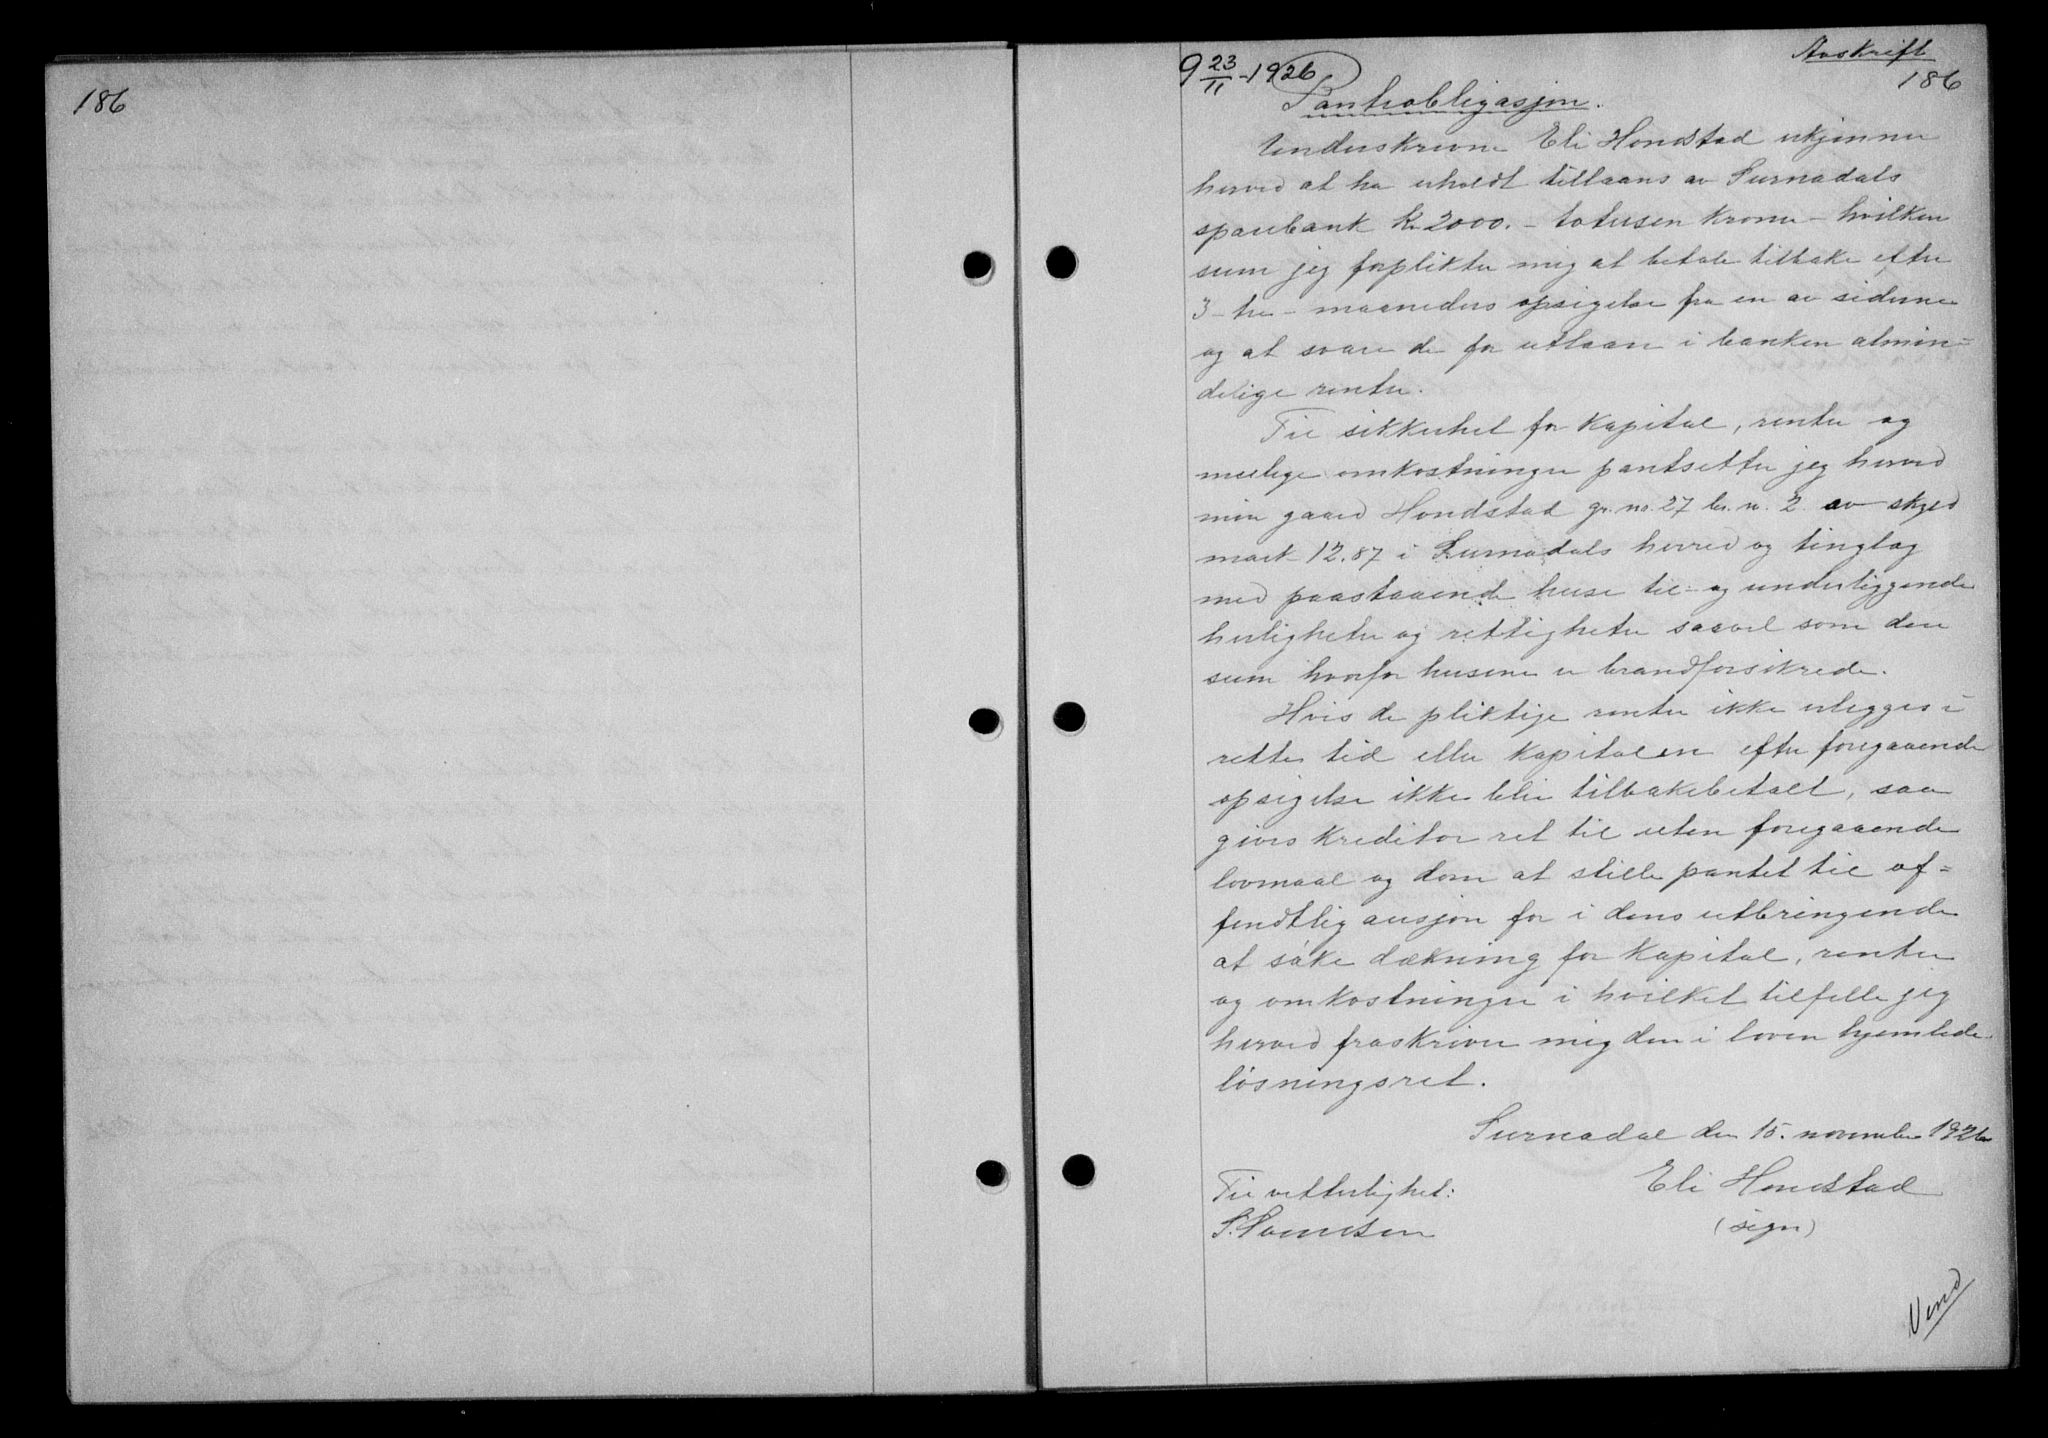 186
Avskrift
186
9 23/11-1926
Pantobligasjon.
Underskrevne Eli Hondstad erkjenner
herved at ha erholdt tillaans av Surnadals
sparebank Kr 2000.- totusen kroner - hvilken
sum jeg forplikter mig at betale tilbake efter
3 - tre - maaneders opsigelse fra en av siderne
og at svare de for utlaan i banken almin=
delige renter.
Til sikkerhet for kapital, renter og
mulige omkostninger pantsetter jeg herved
min gaard Hondstad gr. no. 27 br. n. 2 av skyld
mark 12.87 i Surnadals herred og tinglag
med paastaaende huse til- og underliggende
herligheter og rettigheter saavel som den
sum hvorfor husene er brandforsikrede.
Hvis de pliktige renter ikke erlegges i
rette tid eller kapitalen efter foregaaende
opsigelse ikke blir tilbakebetalt, saa
gives kreditor ret til uten foregaaende
lovmaal og dom at stille pantet til of=
fendtlig ausjon for i dens utbringende
at søke dækning for kapital, renter
og omkostninger i hvilket tilfelle jeg
herved fraskriver mig den i loven hjemlede
løsningsret.
Surnadal den 15. november 1926
Til vitterlighet: Eli Hondstad
S. Svendsen (sign)
Vend